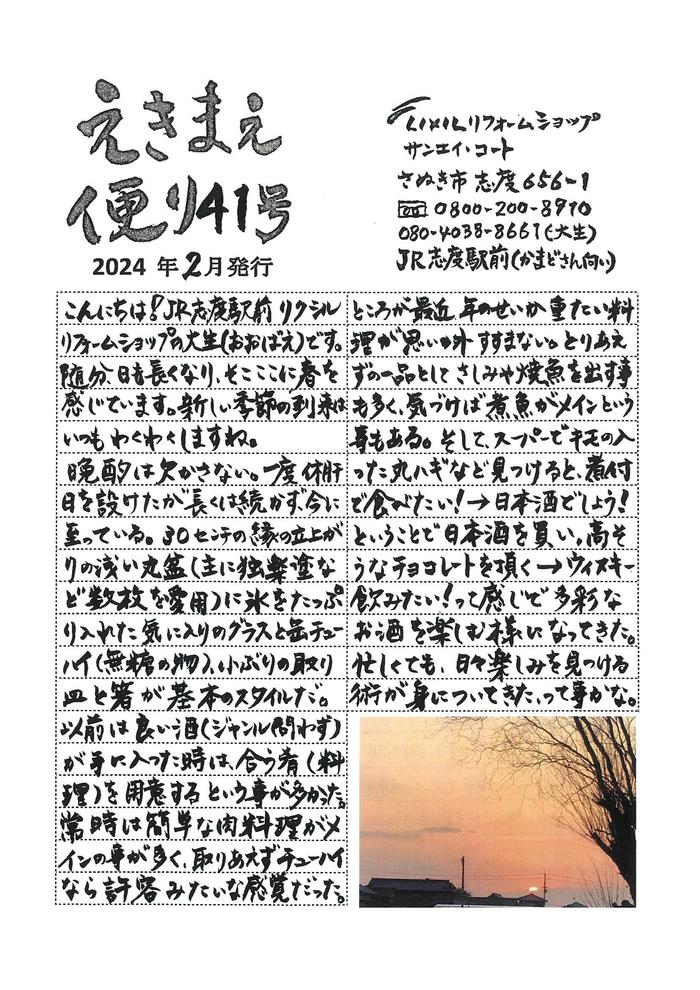 えきまえ
便り41号
2024 年2月発行
LIXILリフォームショップ
サンエイ・コート
さぬき市 志度 656-1
0800-200-8910
080-4038-8661(大生)
JR志度駅前(かまどさん向い)
こんにちは!JR志度駅前 リクシル
リフォームショップの大生(おおばえ)です。
随分、日も長くなり、そこここに春を
感じています。新しい季節の到来は
いつも わくわくしますね。
晩酌は欠かさない。一度 休肝
日を設けたが長くは続かず、今に
至っている。30センチの縁の立上が
りの浅い丸盆(主に独楽塗な
ど数枚を愛用)に氷をたっぷ
り入れた気に入りのグラスと缶チュー
ハイ(無糖の物)、小ぶりの取り
皿と箸が基本のスタイルだ。
以前は良い酒(ジャンル問わず)
が手に入った時は、合う肴(料
理)を用意するという事が多かった。
常時は簡単な肉料理がメ
インの事が多く、取りあえずチューハイ
なら許容みたいな感覚だった。
ところが最近、年のせいか重たい料
理が思いの外すすまない。とりあえ
ずの一品としてさしみや焼魚を出す事
も多く、気づけば煮魚がメインという
事もある。そして、スーパーでキモの入
った丸ハギなど見つけると、煮付
で食べたい!→日本酒でしょう!
ということで日本酒を買い、高そ
うなチョコレートを頂く→ウィスキー
飲みたい!って感じで多彩な
お酒を楽しむ様になってきた。
忙しくても、日々楽しみを見つける
術が身についてきた、って事かな。